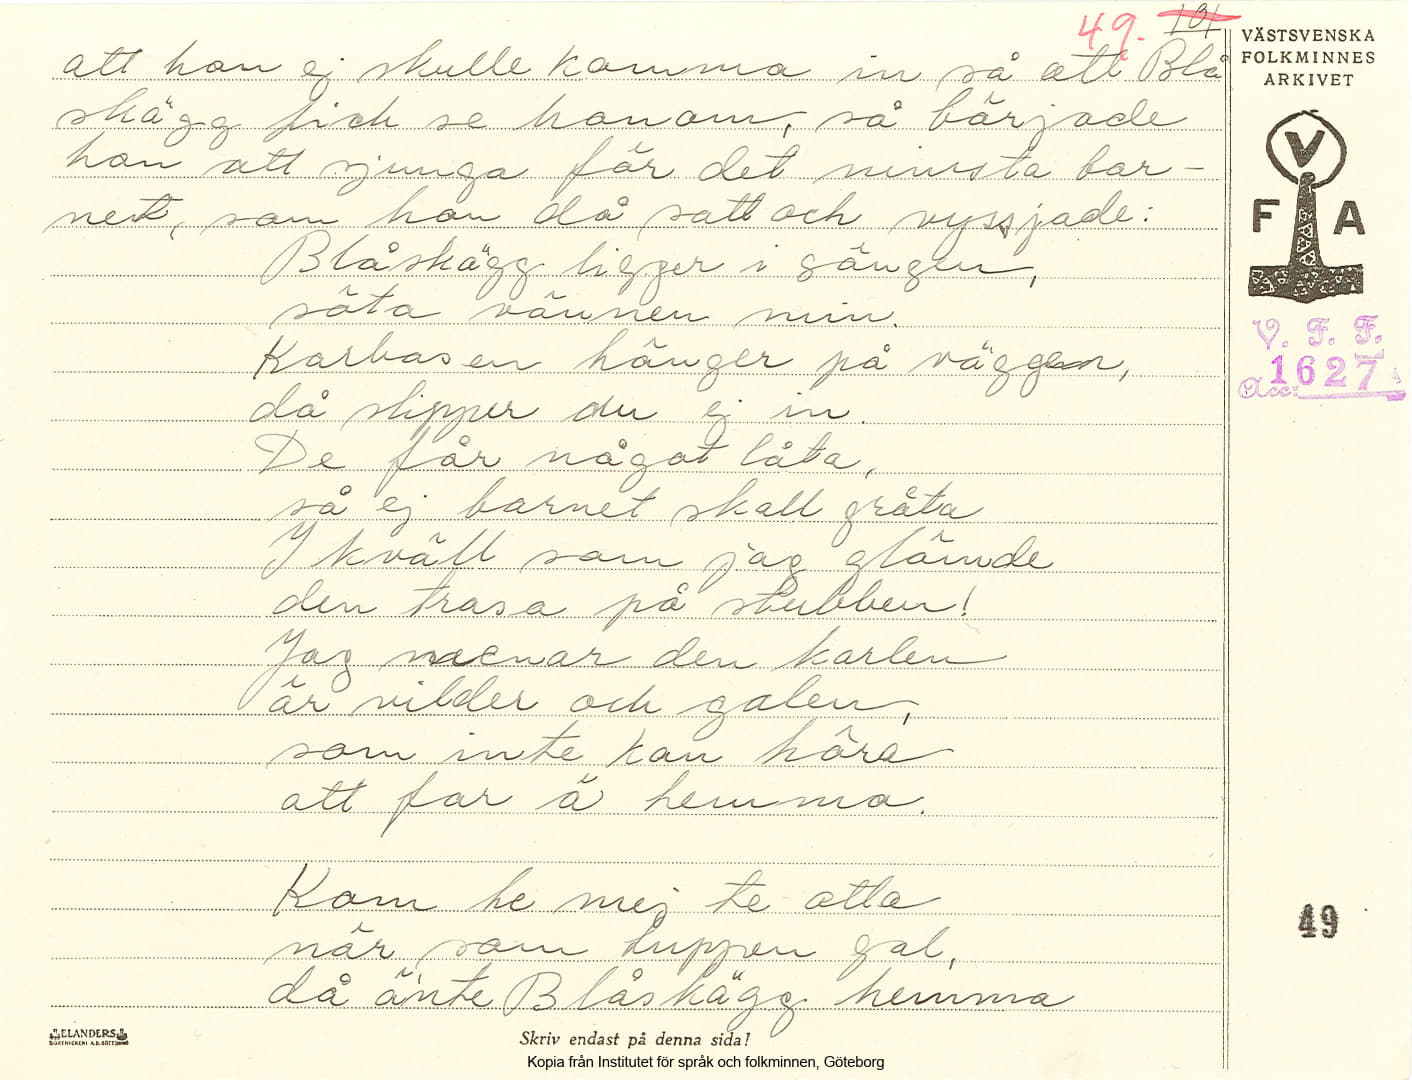 49. 101
VÄSTSVENSKA
FOLKMINNES
ARKIVET
att hon ej skulle komma in så att Blå
skägg fick se honom, så började
hon att sjunga för det minsta bar-
net, som hon då satt och vyssjade:
Blåskägg ligger i sängen,
söta vännen min.
Karbasen hänger på väggen,
då slipper du ej in.
De får något låta,
så ej barnet skall gråta
I kväll som jag glömde
den trasa på stubben!
Jag menar den karlen
är vilder och galen,
som inte kan höra
att far ä hemma.
Kom he mej te otta
när som tuppen gal,
då änte Blåskägg hemma
V
F A
V. F. F.
Acc: 1627
49
ELANDERS
BOKTRYCKERI A.B. GÖTEBORG
Skriv endast på denna sida!
Kopia från Institutet för språk och folkminnen, Göteborg